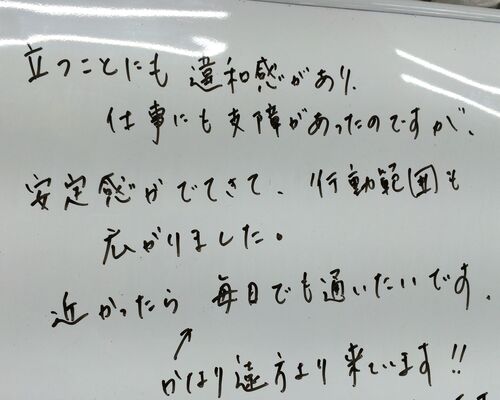 立つことにも 違和感があり、
仕事にも支障があったのですが、
安定感がでてきて、行動範囲も
広がりました。
近かったら 毎日でも通いたいです。
かなり遠方より来ています!!